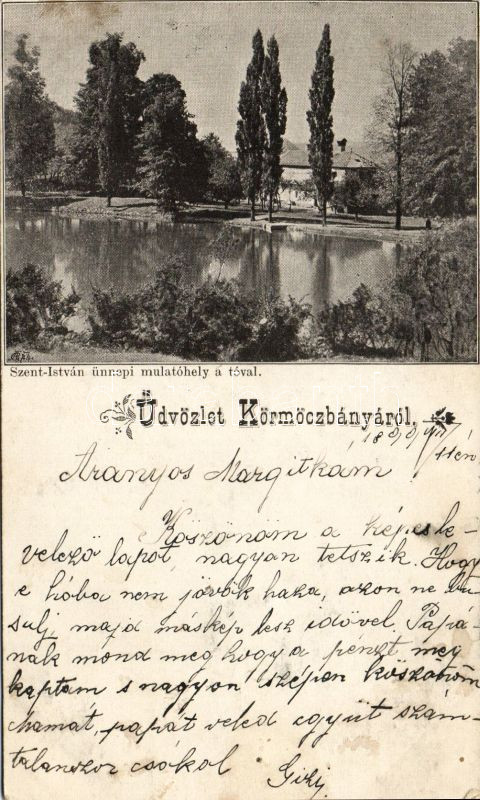 Szent-István ünnepi mulatóhely a tóval.
Üdvözlet Körmöczbányáról.
11én
Aranyos Margitkám
Köszönöm a képesle-
velező lapot, nagyon tetszik. Hogy
e hóba nem jövök haza, azon ne bu
sulj, majd máskép lesz idővel. Papá-
nak mond meg hogy a pénzt meg
kaptam s nagyon szépen köszönöm
Mamát, papát veled együt szám-
talanszor csókol Gizi